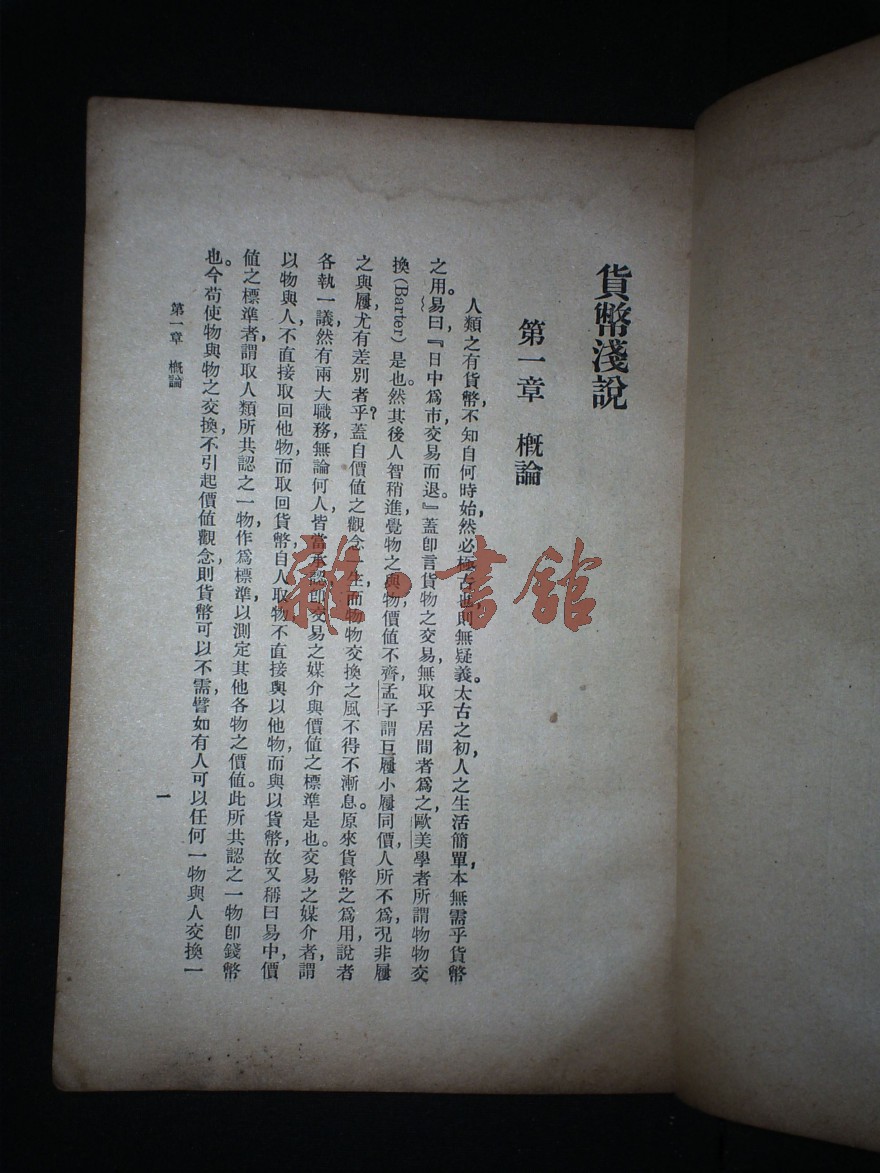 貨幣淺說
第一章 概論
人類之有貨幣，不知自何時始，然必極古也，則無疑義。太古之初，人之生活簡單，本無需乎貨幣
之用。易曰，『日中爲市，交易而退。』蓋卽言貨物之交易，無取乎居間者爲之，歐美學者所謂物物交
換（Barter）是也。然其後人智稍進，覺物之與物，價值不齊，孟子謂巨屨小屨同價，人所不爲，況非屨
之與屨，尤有差別者乎？蓋自價值之觀念一生，而物物交換之風不得不漸息。原來貨幣之爲用，說者
各執一議，然有兩大職務，無論何人，皆當承認，卽交易之媒介與價值之標準是也。交易之媒介者，謂
以物與人，不直接取回他物，而取回貨幣，自人取物，不直接與以他物，而與以貨幣，故又稱曰易中，價
值之標準者，謂取人類所共認之一物，作爲標準，以測定其他各物之價值。此所共認之一物卽錢幣
也。今苟使物與物之交換，不引起價值觀念，則貨幣可以不需，譬如有人可以任何一物與人交換一
第一章 概論
一
雜·書館